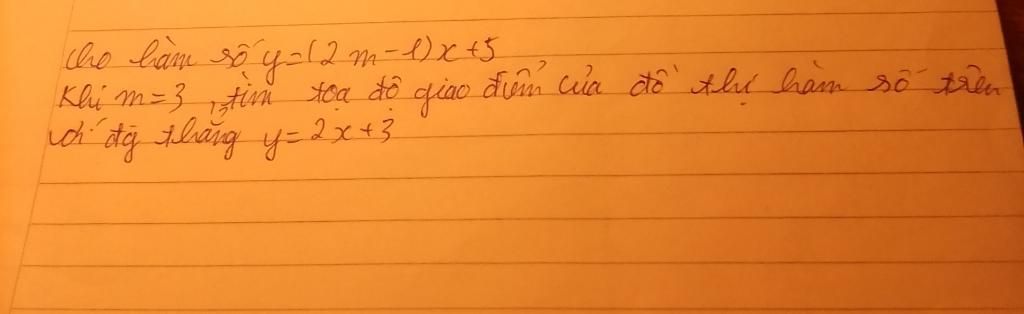 Cho hàm số y=(2m-1)x+5
Khi m=3, tìm toạ độ giao điểm của đồ thị hàm số trên
với đg thẳng y=2x+3